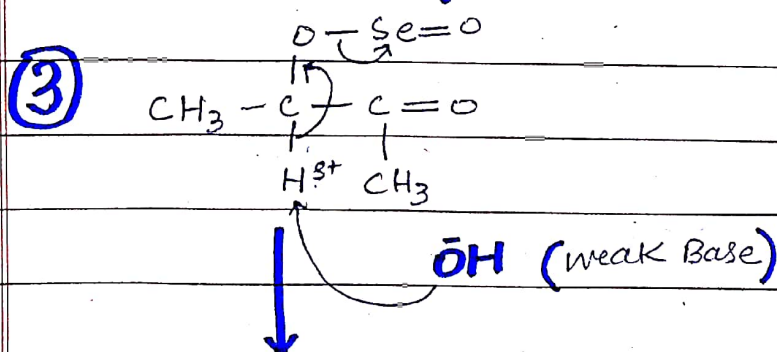 O - Se = O
③ CH3 - C - C = O
H δ+ CH3
ŌH (weak Base)